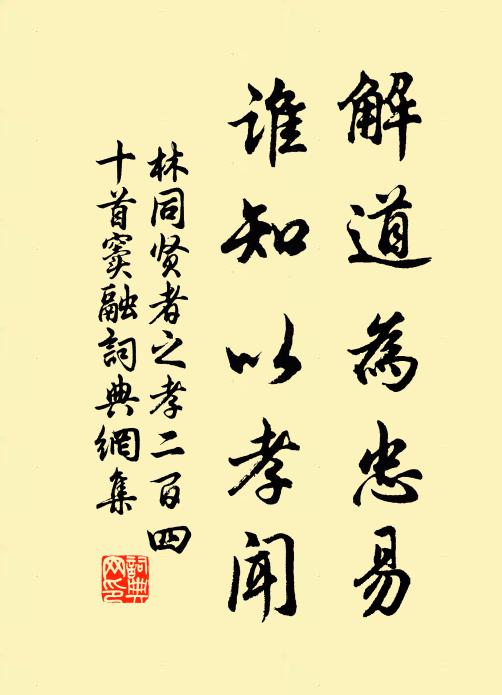 解道為忠易
誰知以孝聞
林同贤者之孝二百四
十首窦融詞典網集
詞典
网印